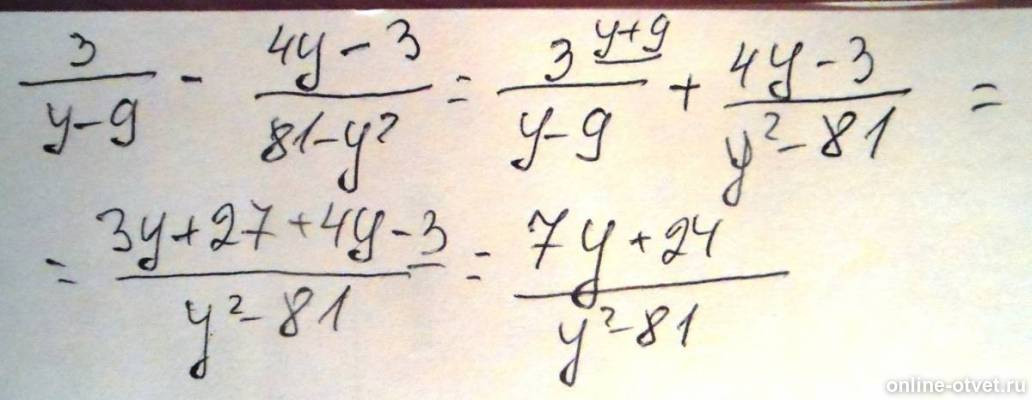 3/(y-9) - (4y-3)/(81-y²) = 3 (y+9)/(y-9) + (4y-3)/(y²-81) =
= (3y+27+4y-3)/(y²-81) = (7y+24)/(y²-81)
online-otvet.ru